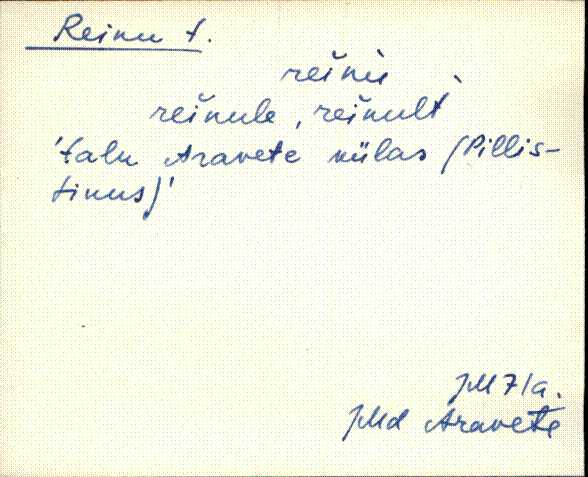 Reinu t.
reinù
reinule, reinult
'talu Aravete külas (Pillis-
tinus)'
JMd Aravete